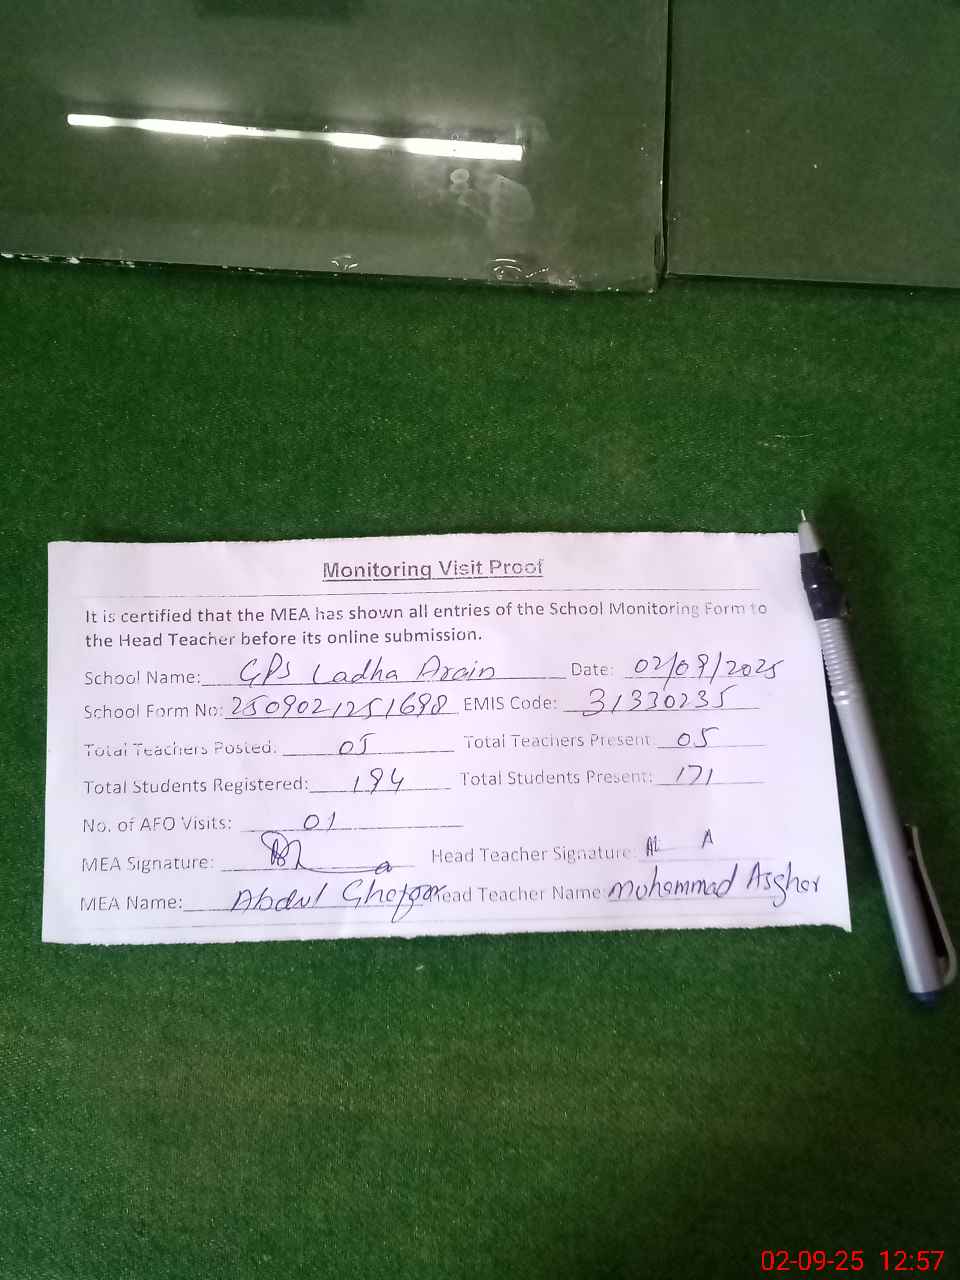 Monitoring Visit Proof
It is certified that the MEA has shown all entries of the School Monitoring Form to
the Head Teacher before its online submission.
School Name: GPS Ladha Arain Date: 02/09/2025
School Form No: 2509021251698 EMIS Code: 31330235
Total Teachers Posted: 05 Total Teachers Present: 05
Total Students Registered: 194 Total Students Present: 171
No. of AFO Visits: 01
MEA Signature: Head Teacher Signature:
MEA Name: Abdul Ghafoor Head Teacher Name: Muhammad Asghar
02-09-25 12:57